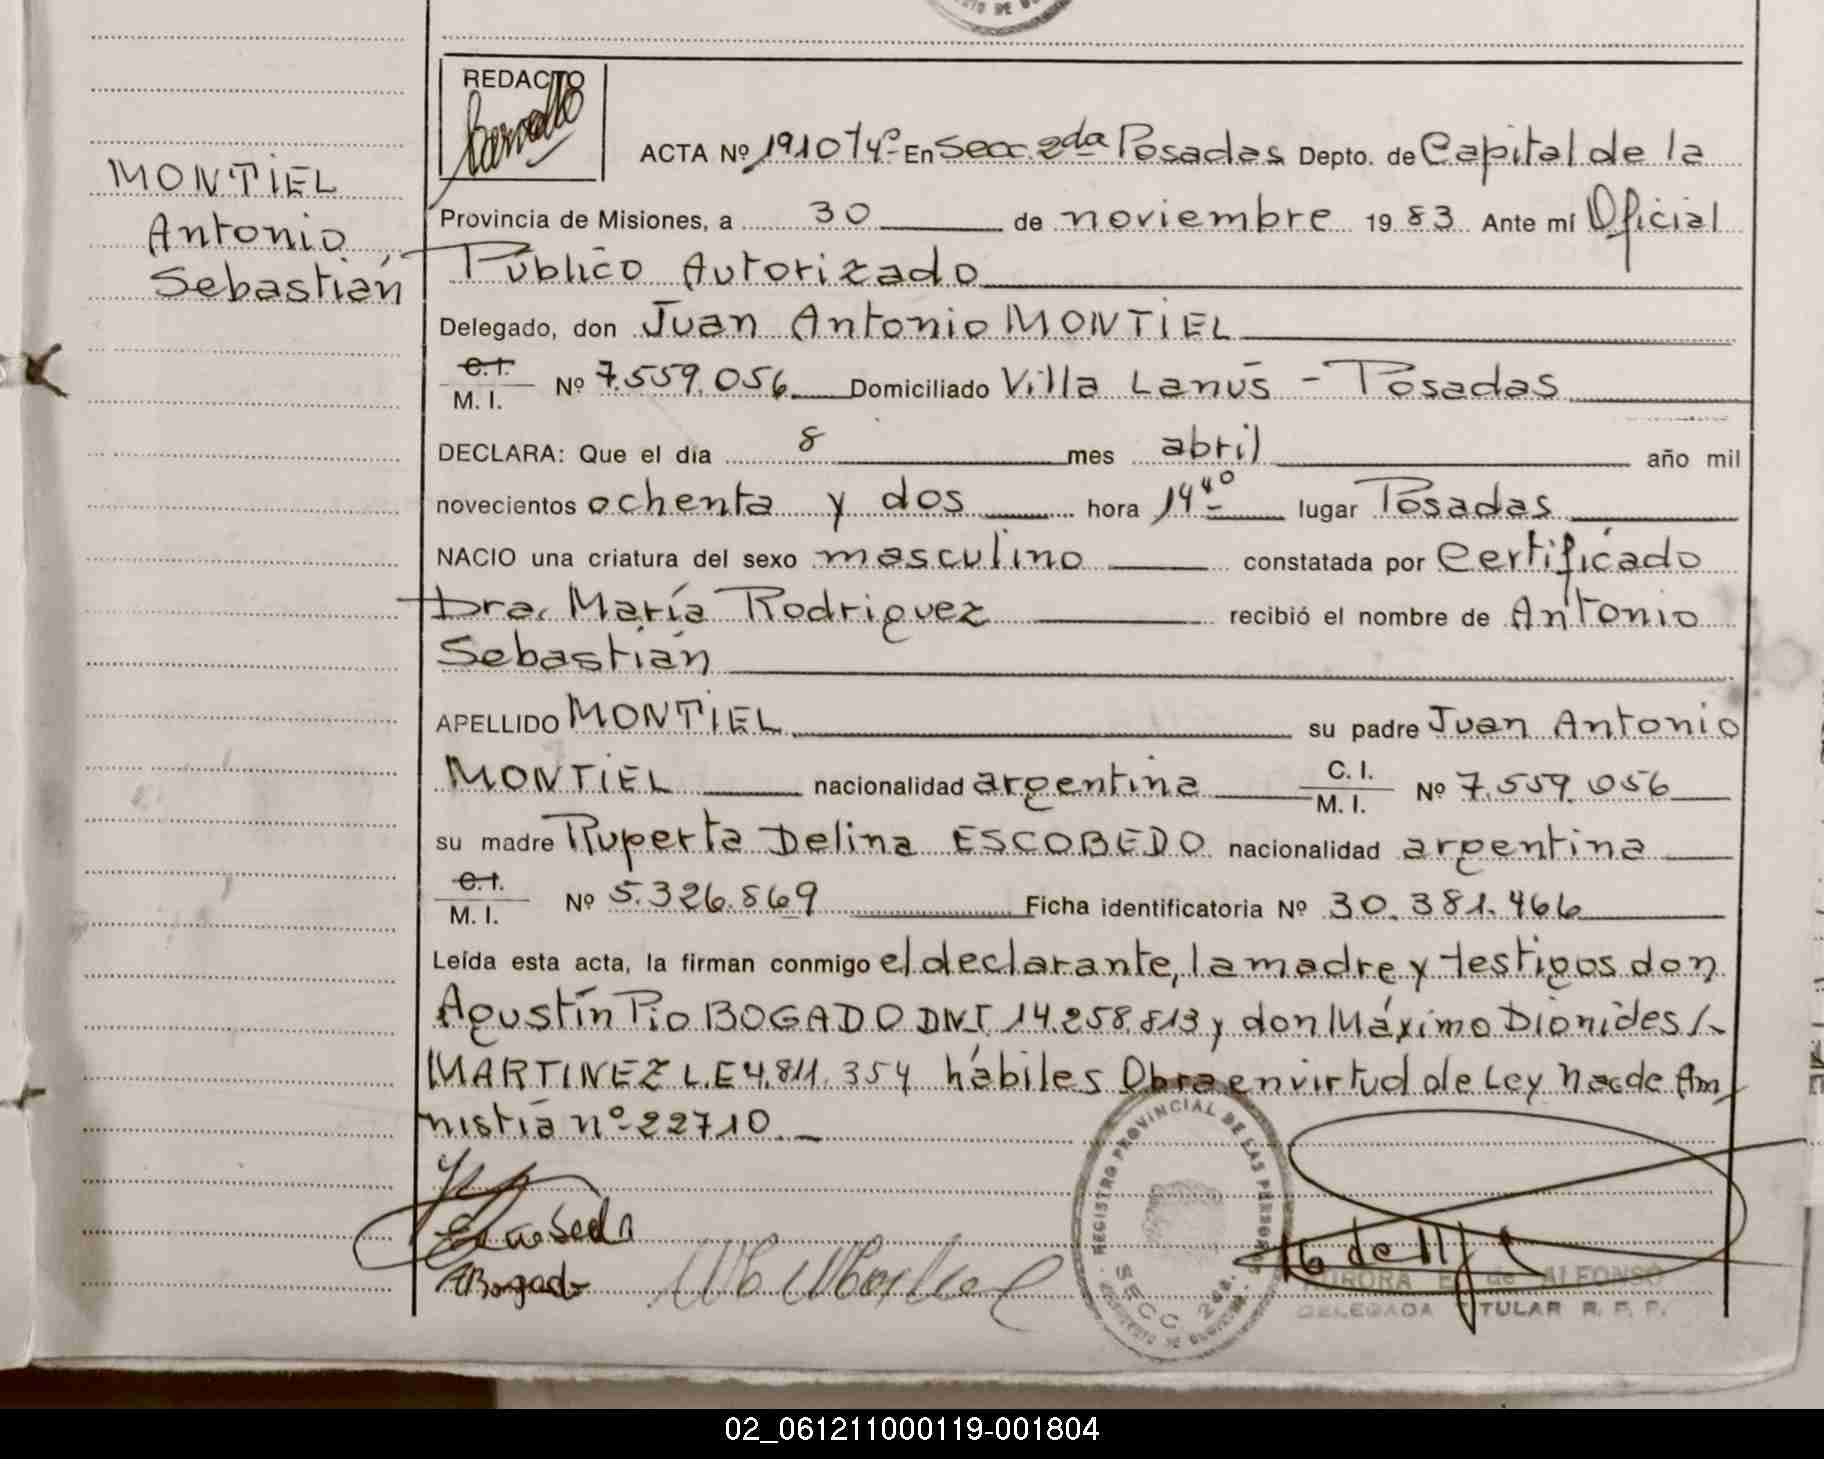 REDACTO
MONTIEL
Antonio
Sebastián
ACTA Nº 1910 Tº 4º En Secc. 2da Posadas Depto. de Capital de la
Provincia de Misiones, a 30 de noviembre 1983 Ante mí Oficial
Público Autorizado
Delegado, don Juan Antonio MONTIEL
C.I.
M. I. Nº 7.559.056 Domiciliado Villa Lanús - Posadas
DECLARA: Que el día 8 mes abril año mil
novecientos ochenta y dos hora 14 40 lugar Posadas
NACIO una criatura del sexo masculino constatada por Certificado
Dra. María Rodriguez recibió el nombre de Antonio
Sebastián
APELLIDO MONTIEL su padre Juan Antonio
MONTIEL nacionalidad argentina C. I. M. I. Nº 7.559.056
su madre Ruperta Delina ESCOBEDO nacionalidad argentina
C.I.
M. I. Nº 5.326.869 Ficha identificatoria Nº 30.381.466
Leída esta acta, la firman conmigo el declarante, la madre y testigos don
Agustín Pio BOGADO DNI 14.258.813 y don Máximo Dionides
MARTINEZ L.E 4.811.354 hábiles Obra en virtud de Ley Nac de Am
nistía nº 22710. _
Bogado
REGISTRO PROVINCIAL DE LAS PERSONAS
SECC. 2da.
AURORA E. de ALFONSO
DELEGADA TITULAR R. P. P.
02_061211000119-001804